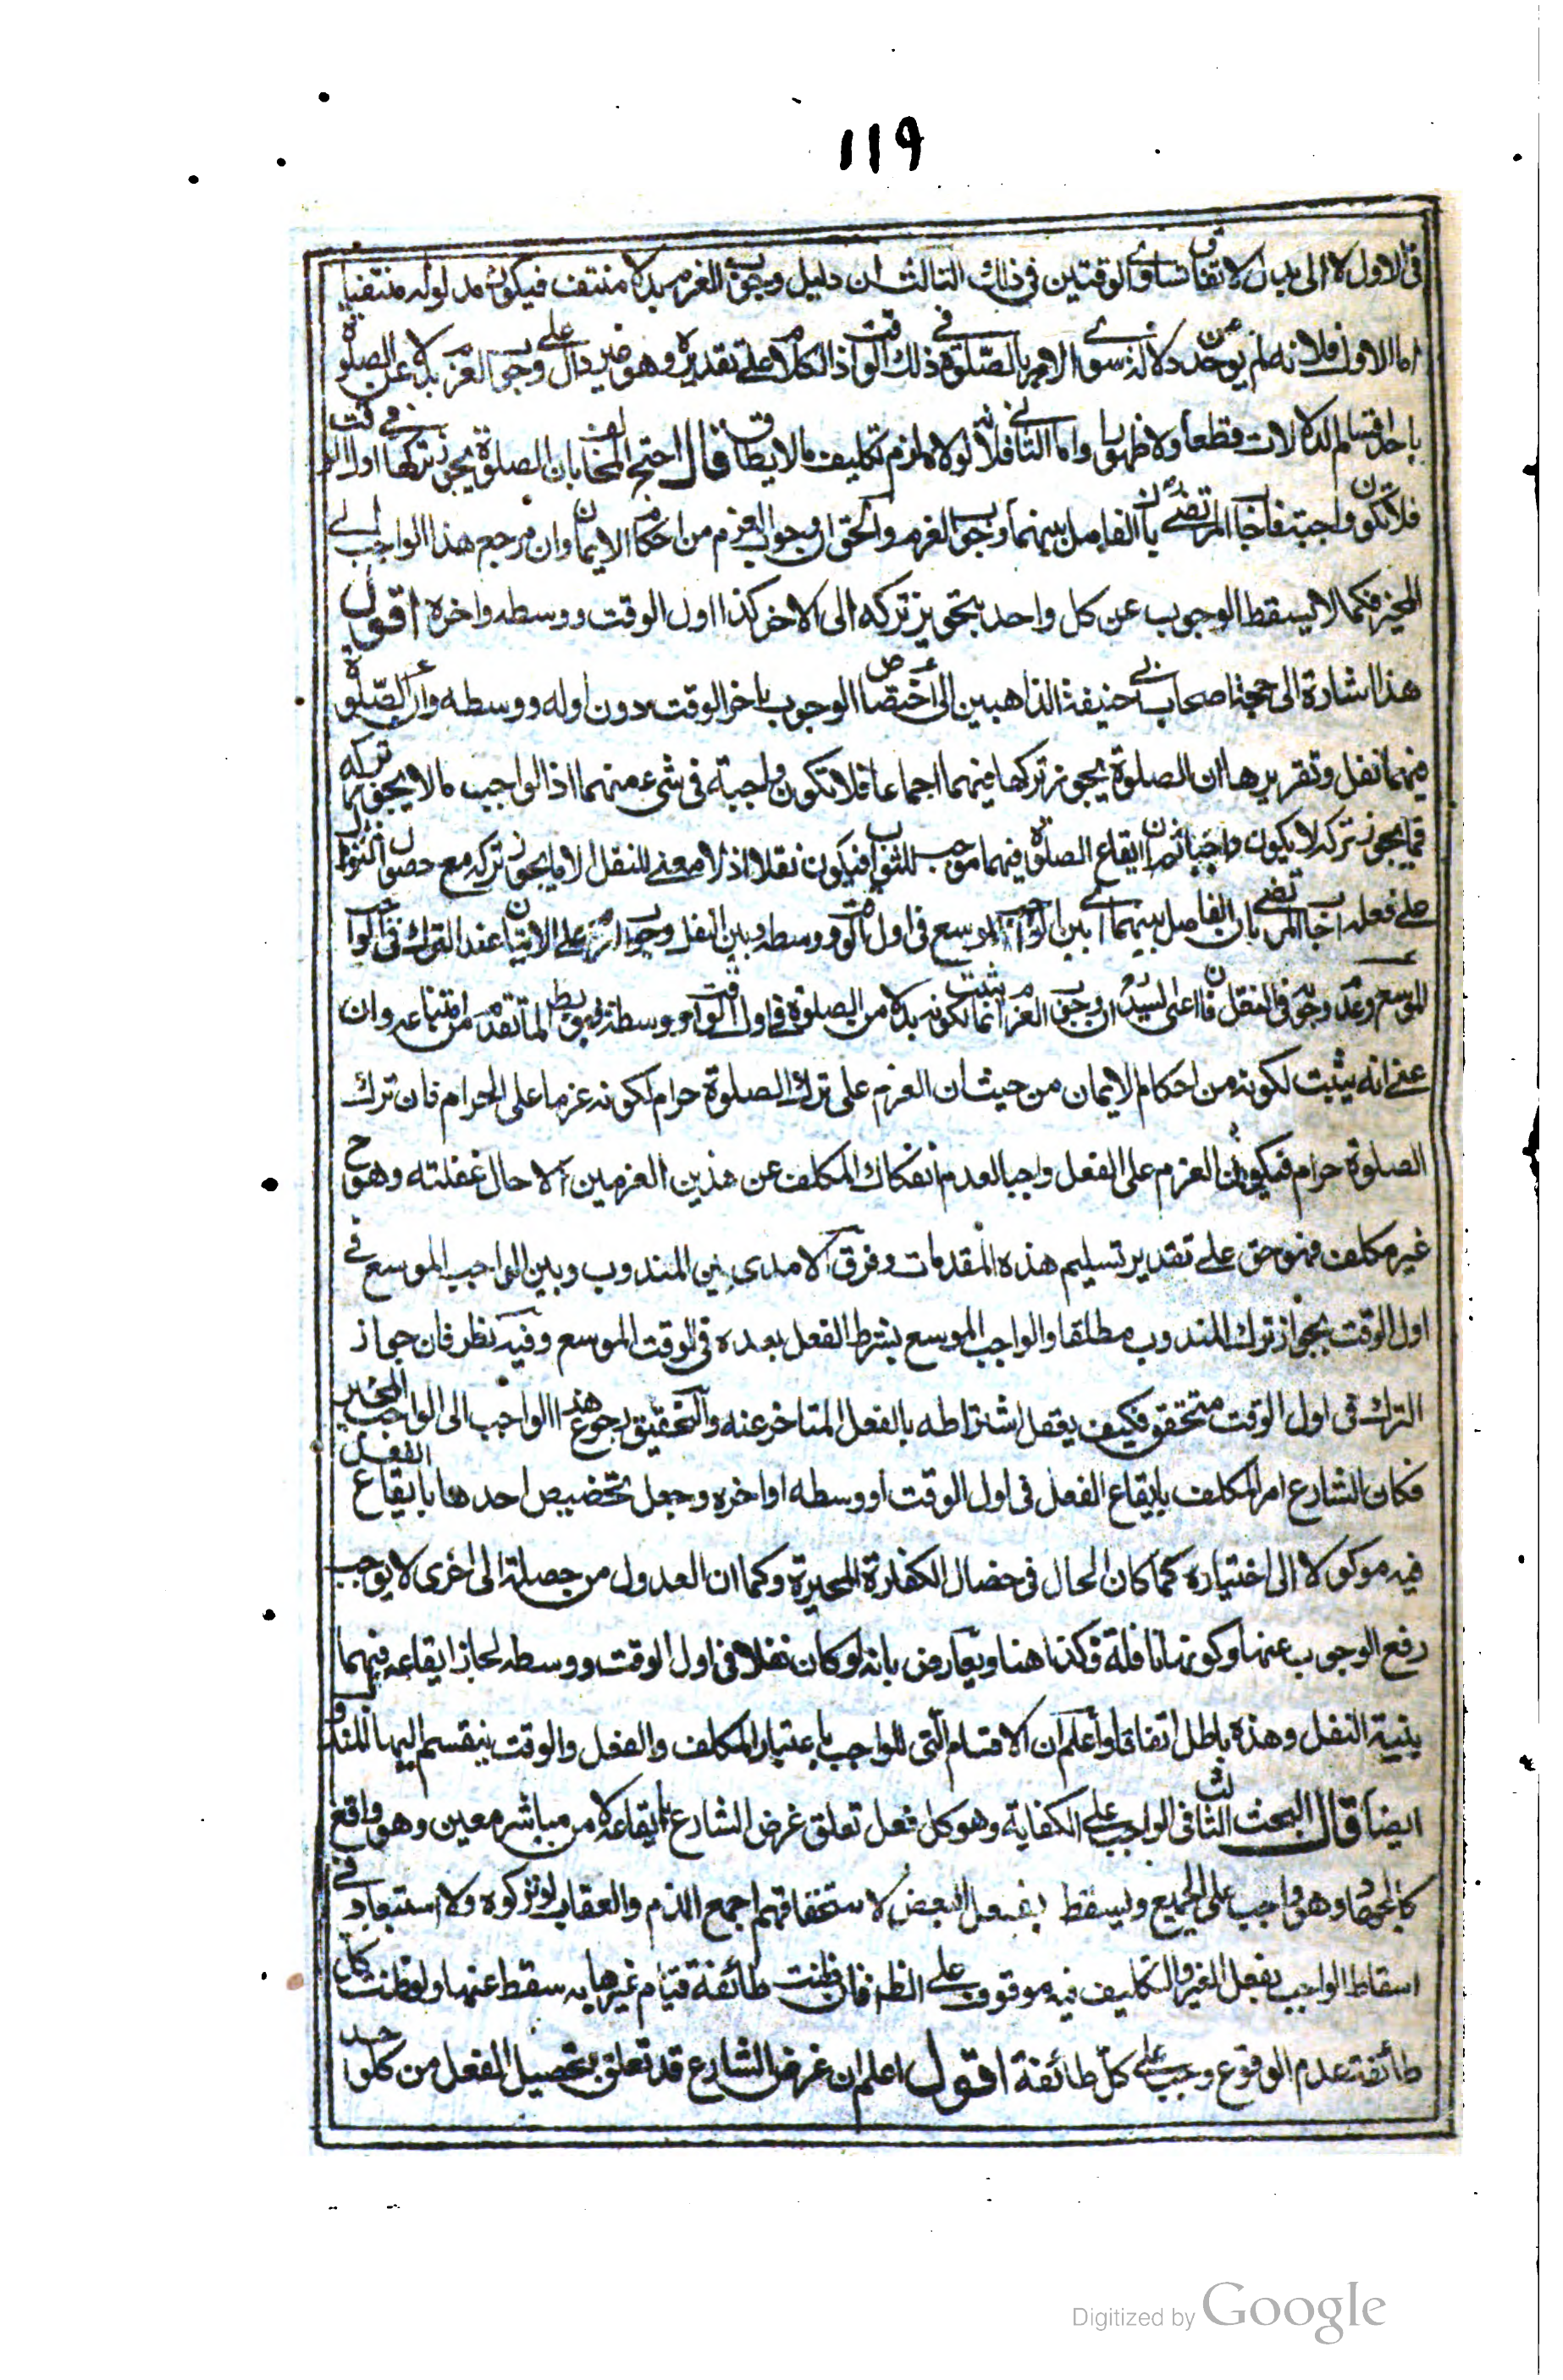 119
فى الاول لا الى بدل لاتفاق تساوى الوقتين فى ذلك الثالث ان دليل وجوب العزم بدلا منتف فيكون مدلوله منتفيا
اما الاول فلانه لم يوجد دلالة سوى الامر بالصلوة فى ذلك الوقت اذ الكلام على تقديره وهو غير دال على وجوب العزم بدلا عن الصلوة
باحد اقسام الدلالات قطعا ولا ظهورا واما الثانى فلانه لولاه لزم تكليف ما لا يطاق قال احتج المخالف بان الصلوة يجوز تركها فى اول الوقت
فلا تكون واجبة فاجاب المرتضى بان الفاصل بينهما وجوب العزم والحق ان وجوب العزم من احكام الايمان وان مرجع هذا الواجب الى
المخير فكما لا يسقط الوجوب عن كل واحد بتجويز تركه الى الاخر كذا اول الوقت ووسطه واخره اقول
هذا اشارة الى حجة اصحاب ابى حنيفة الذاهبين الى اختصاص الوجوب باخر الوقت دون اوله ووسطه وان الصلوة
فيهما نفل وتقريرها ان الصلوة يجوز تركها فيهما اجماعا فلا تكون واجبة فى شىء منهما اذ الواجب ما لا يجوز تركه
فما يجوز تركه لا يكون واجبا ثم ان ايقاع الصلوة فيهما موجب للثواب فيكون نفلا اذ لا معنى للنفل الا ما يجوز تركه مع حصول الثواب
على فعله اجاب المرتضى بان الفاصل بينهما اى بين الواجب الموسع فى اول الوقت ووسطه وبين النفل وجوب العزم على الاتيان عند الترك فى الواجب
الموسع وعدم وجوبه فى النفل فان اعنى السيد ان وجوب العزم انما يثبت لكونه بدلا من الصلوة فى اول الوقت ووسطه فهو بط لما تقدم من امتناعه وان
عنى انه يثبت لكونه من احكام الايمان من حيث ان العزم على ترك الصلوة حرام لكونه عزما على الحرام فان ترك
الصلوة حرام فيكون العزم على الفعل واجبا لعدم انفكاك المكلف عن هذين العزمين الا حال غفلته وهو ح
غير مكلف فهو حق على تقدير تسليم هذه المقدمات وفرق الامدى بين المندوب وبين الواجب الموسع فى
اول الوقت بجواز ترك المندوب مطلقا والواجب الموسع بشرط الفعل بعده فى الوقت الموسع وفيه نظر فان جواز
الترك فى اول الوقت متحقق فكيف يعقل اشتراطه بالفعل المتاخر عنه والتحقيق رجوع هذا الواجب الى الواجب المخير
فكان الشارع امر المكلف بايقاع الفعل فى اول الوقت او وسطه او اخره وجعل تخصيص احدها بايقاع الفعل
فيه موكولا الى اختياره كما كان الحال فى خصال الكفارة المخيرة وكما ان العدول من خصلة الى اخرى لا يوجب
رفع الوجوب عنها وكونها نافلة فكذا هنا ويعارض بانه لو كان نفلا فى اول الوقت ووسطه لجاز ايقاعه فيهما
بنية النفل وهذه باطل اتفاقا واعلم ان الاقسام التى للواجب باعتبار المكلف والفعل والوقت ينقسم اليها المندوب
ايضا قال البحث الثالث فى الواجب على الكفاية وهو كل فعل تعلق غرض الشارع بايقاعه لا من مباشر معين وهو واقع
كالجهاد وهو واجب على الجميع ويسقط بفعل البعض لاستحقاقهم اجمع الذم والعقاب لو تركوه ولا استبعاد فى
اسقاط الواجب بفعل الغير والتكليف فيه موقوف على الظن فان ظنت طائفة قيام غيرها به سقط عنها ولو ظنت كل
طائفة عدم الوقوع وجب على كل طائفة اقول اعلم ان غرض الشارع قد تعلق بتحصيل الفعل من كل واحد
Digitized by Google